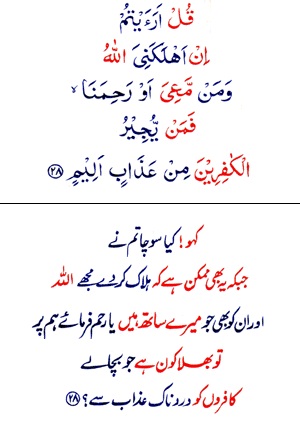 قُلْ اَرَءَيْتُمْ
اِنْ اَهْلَكَنِىَ اللهُ
وَمَنْ مَّعِىَ اَوْ رَحِمَنَا ۙ
فَمَنْ يُّجِيْرُ
الْكٰفِرِيْنَ مِنْ عَذَابٍ اَلِيْمٍ ﴿۲۸﴾
کہو! کیا سوچا تم نے
جبکہ یہ بھی ممکن ہے کہ ہلاک کر دے مجھے اللہ
اور ان کو بھی جو میرے ساتھ ہیں یا رحم فرمائے ہم پر
تو بھلا کون ہے جو بچالے
کافروں کو دردناک عذاب سے؟ ﴿۲۸﴾